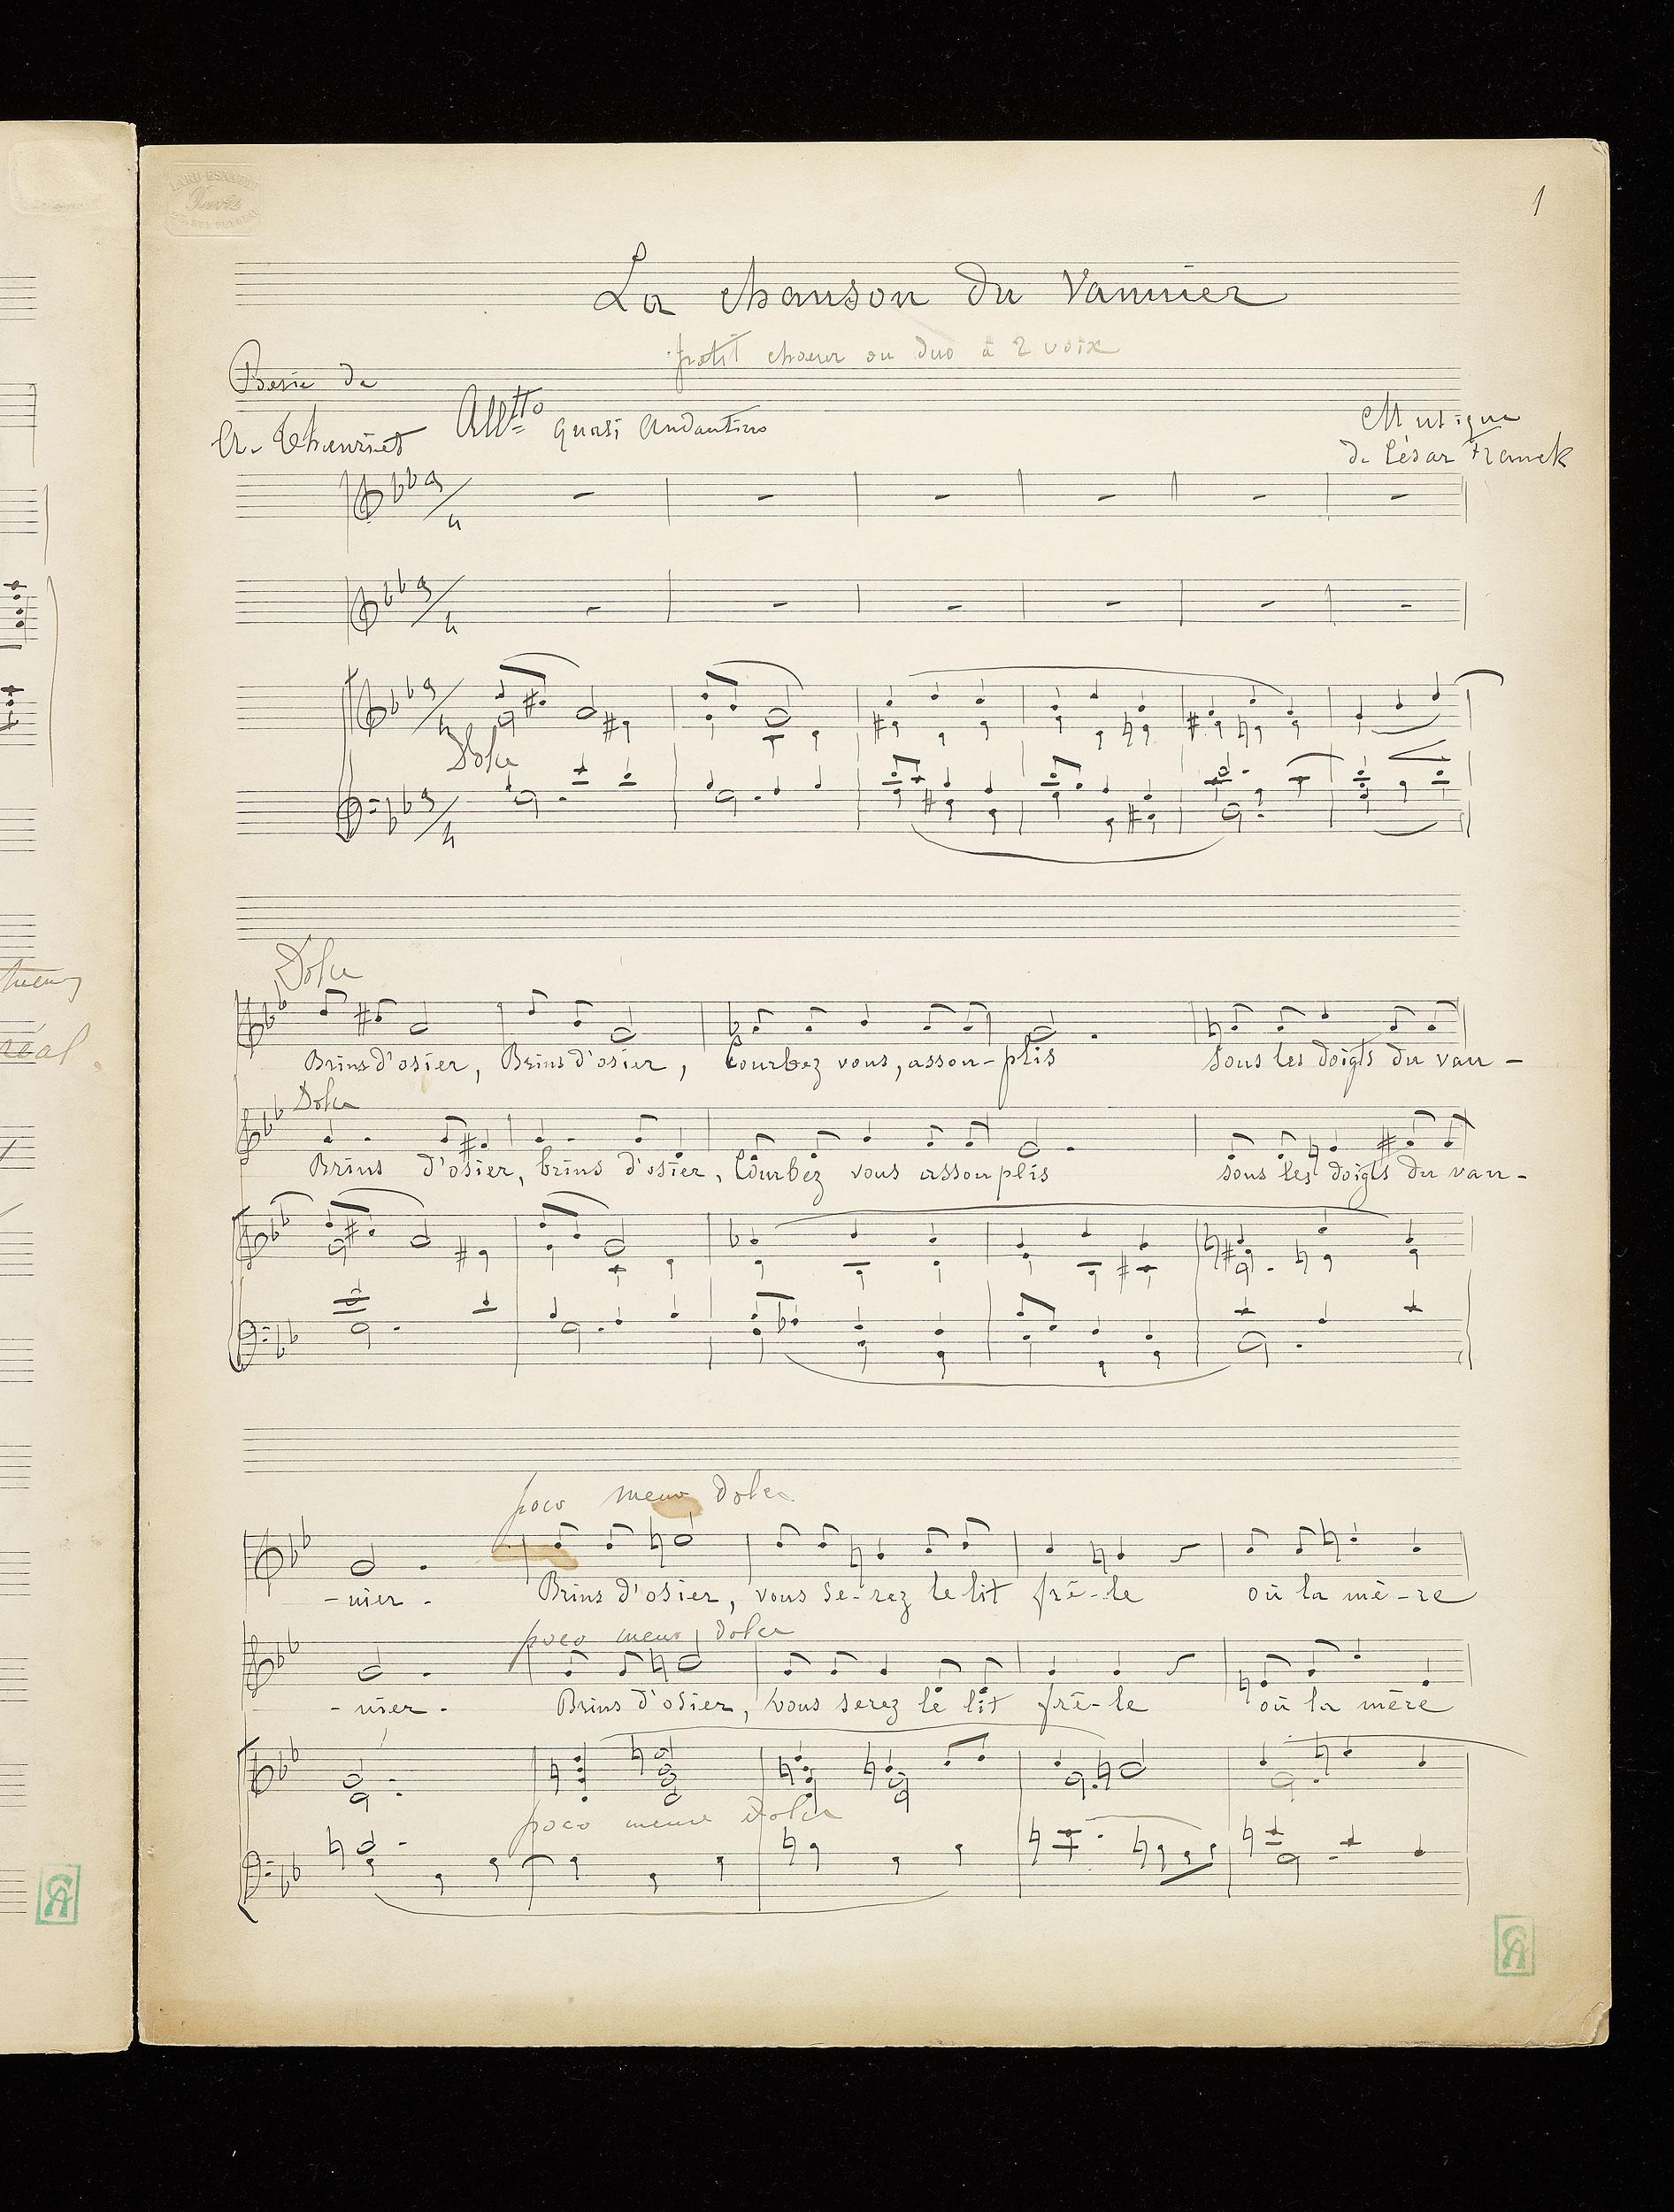 1
La chanson du Vannier
petit choeur ou duo à 2 voix
Poesie de
A. Theuriet
All^tto quasi Andantino
Musique
de César Franck
Dolce
Dolce
Brins d'osier, Brins d'osier, Courbez vous, assou-plis sous les doigts du van-
Dolce
Brins d'osier, brins d'osier, Courbez vous assouplis sous les doigts du van-
poco meno dolce
-nier. Brins d'osier, vous se-rez le lit frê-le où la mè-re
poco meno dolce
-nier. Brins d'osier, vous serez le lit frê-le où la mère
poco meno dolce